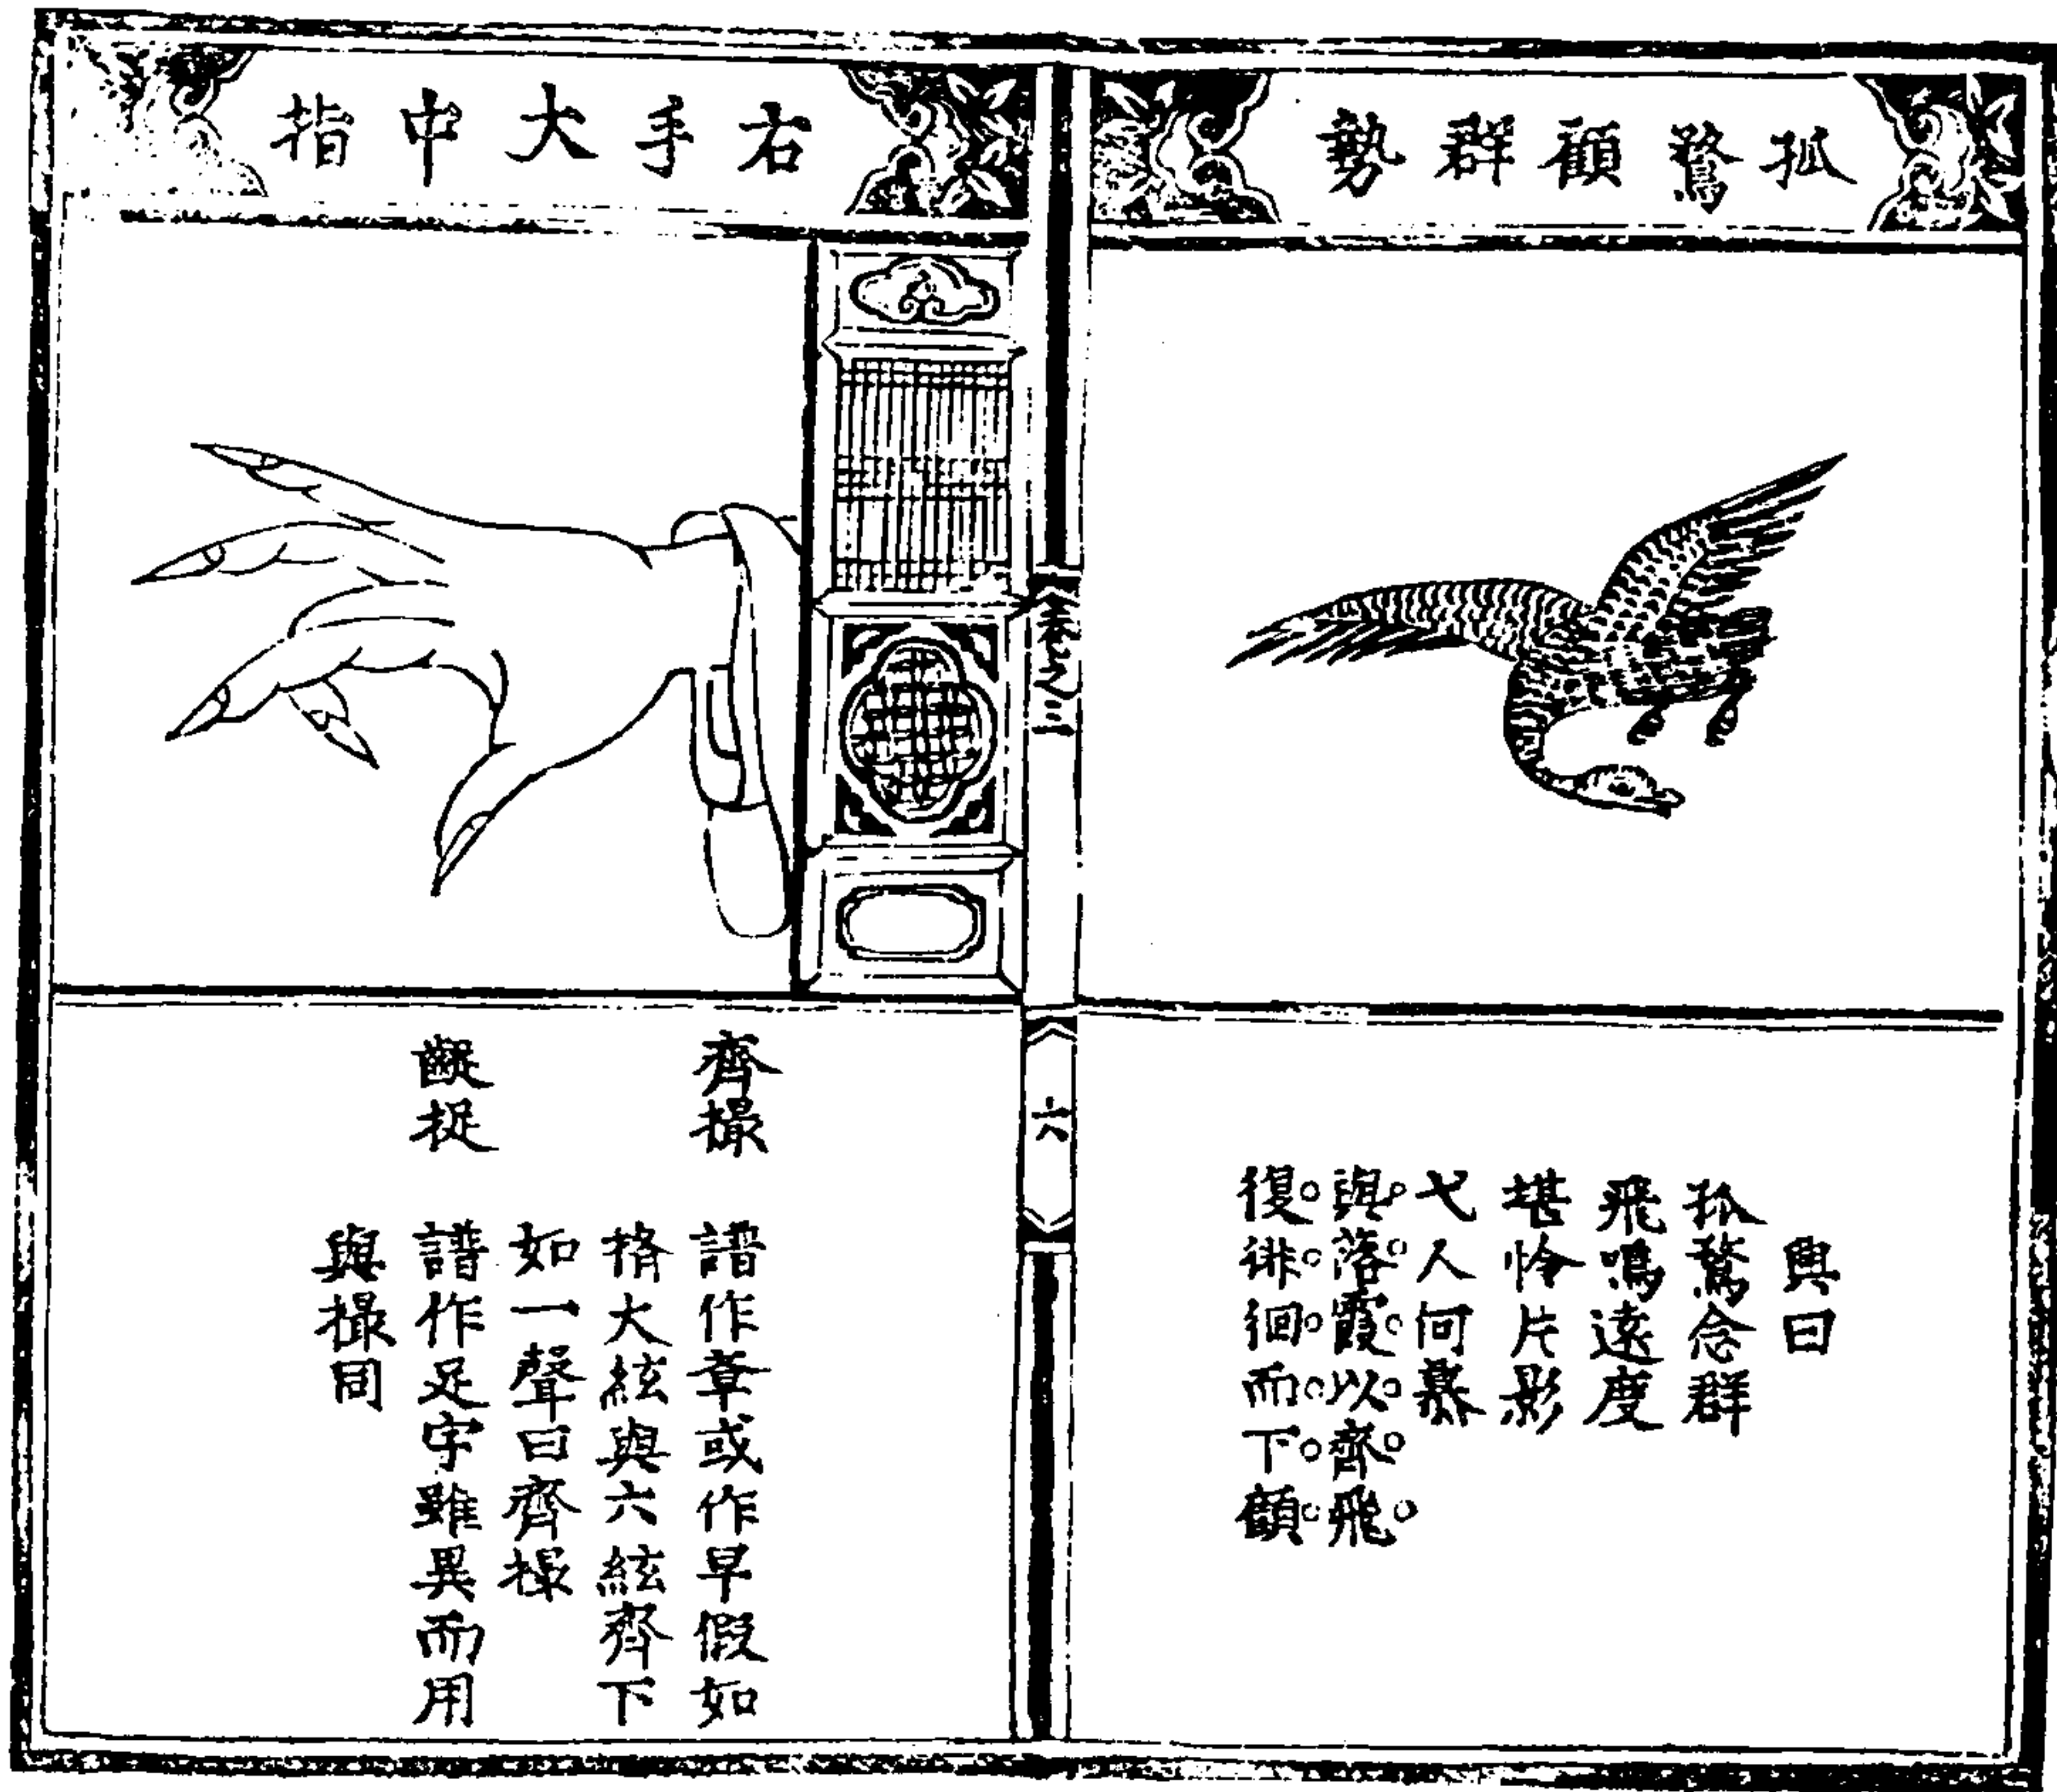 孤鶩顧群勢
興曰
孤鶩念群
飛鳴遠度
堪怜片影
弋人何慕
與落霞以齊飛
復徘徊而下顧
卷之三
六
右手大中指
齊撮 譜作章或作早假如
大絃與六絃齊下
如一聲曰齊撮
捉 譜作足字雖異而用
與撮同